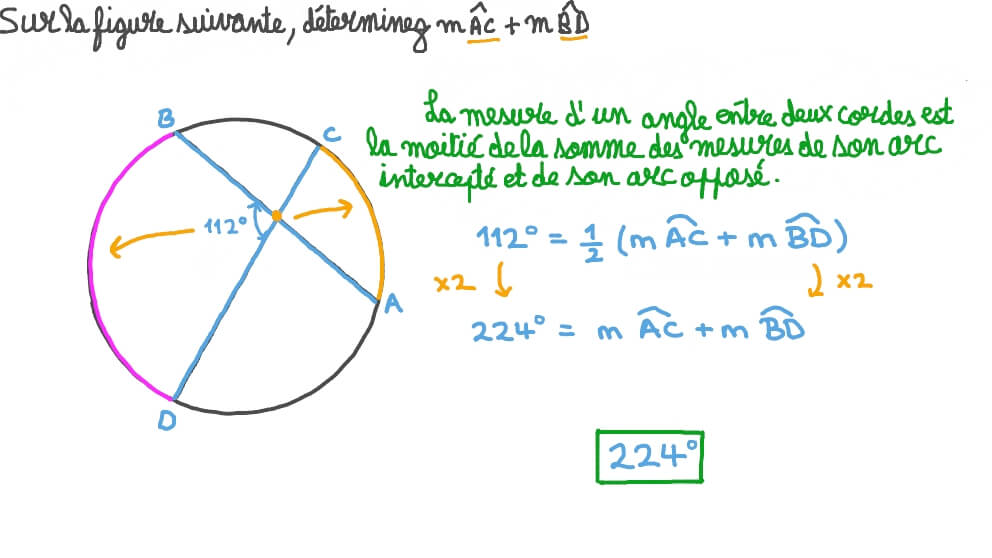 Sur la figure suivante, déterminez m AĈ + m BD̂
B
C
La mesure d'un angle entre deux cordes est
la moitié de la somme des mesures de son arc
intercepté et de son arc opposé.
112°
112° = 1/2 (m A͡C + m B͡D)
x2 x2
A
224° = m A͡C + m B͡D
D
224°